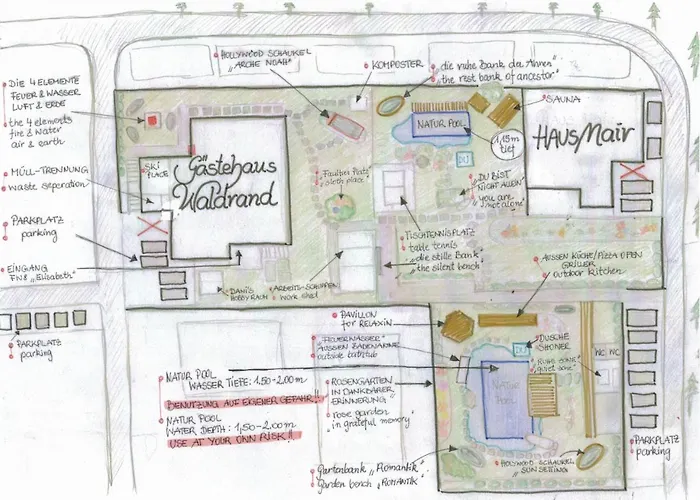 HOLLYWOOD SCHAUKEL
„ARCHE NOAH"
KOMPOSTER
die ruhe Bank der Ahnen
the rest bank of ancestor
DIE 4 ELEMENTE
FEUER & WASSER
LUFT & ERDE
the 4 elements
fire & water
air & earth
MÜLL-TRENNUNG
waste seperation
PARKPLATZ
parking
EINGANG
"Elisabeth"
PARKPLATZ
parking
SKI
PLACE
Gästehaus
Waldrand
„Faultier Platz"
„sloth place"
NATUR POOL
1,15m
tief
SAUNA
HAUS Mair
DU
„DU BIST
NICHT ALLEIN"
„you are
not alone"
TISCHTENNISPLATZ
table tennis
„die stille Bank"
„the silent bench"
AUSSEN KÜCHE/PIZZA OFEN
GRILLER
outdoor kitchen
DANI'S
HOBBYRAUM
ARBEITS-SCHUPPEN
work shed
PAVILLON
for RELAXIN
„FEUERWASSER"
AUSSEN BADEWANNE
outside bathtub
DUSCHE
SHOWER
DU
„RUHE ZONE"
„quiet zone"
WC WC
NATUR POOL
WASSER TIEFE: 1,50-2,00 m
BENUTZUNG AUF EIGENER GEFAHR!!
NATUR POOL
WATER DEPTH: 1,50-2,00 m
USE AT YOUR OWN RISK!!
ROSENGARTEN
IN DANKBARER
ERINNERUNG
rose garden
in grateful memory
NATUR
POOL
Gartenbank „Romantik"
Garden bench „ROMANTIK
HOLYWOOD-SCHAUKEL
SUNSETTING
PARKPLATZ
parking